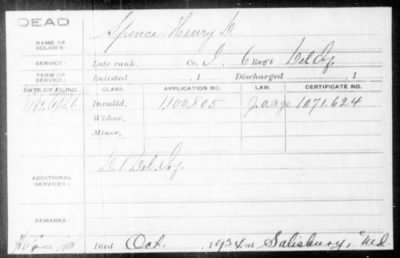 DEAD
NAME OF SOLDIER: Spence Henry
SERVICE: Late rank, Co. I, 6 Reg't Del Inf.
TERM OF SERVICE: Enlisted , 1 Discharged , 1
DATE OF FILING. CLASS. APPLICATION NO. LAW. CERTIFICATE NO.
Invalid, 1100,805 1071,624
Widow,
Minor,
ADDITIONAL SERVICES: Del. Inf.
REMARKS:
Died Oct. , 1934 at Salisbury, Md